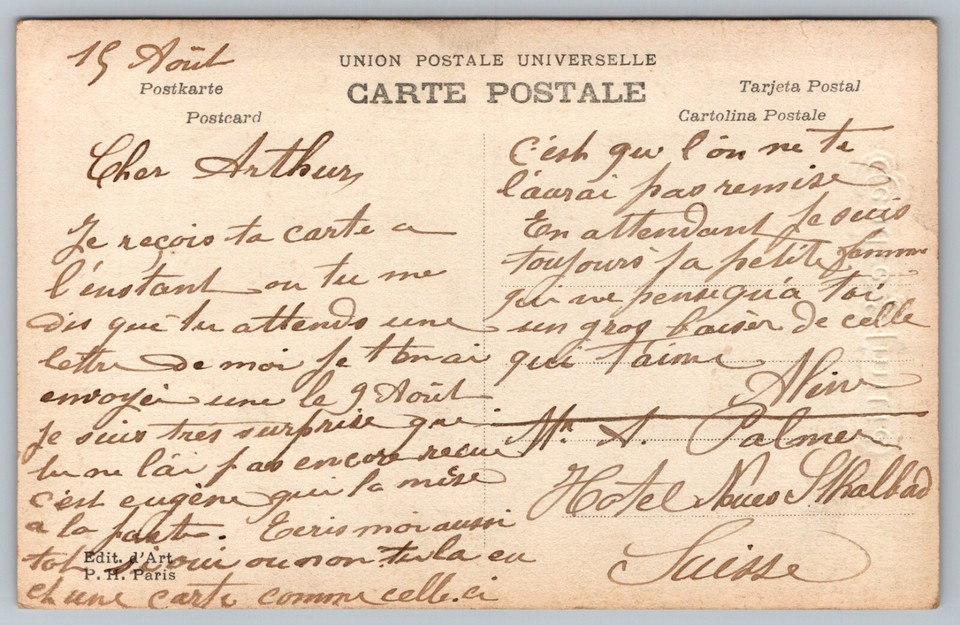 15 Août
UNION POSTALE UNIVERSELLE
CARTE POSTALE
Postkarte
Postcard
Tarjeta Postal
Cartolina Postale
Cher Arthur,
Je reçois ta carte a
l'enstant ou tu me
dis que tu attends une
lettre de moi Je t'en ai
envoyée une le 9 Août
je suis tres surprise que
tu ne l'ai pas encore recue
c'est eugène qui la mise
a la poste. Ecris moi aussi
tot si oui ou non tu la eu
et une carte comme celle.ci
Edit. d'Art
P. H. Paris
c'est que l'on ne te
l'aurai pas remise
En attendant Je suis
toujours ta petite femme
qui ne pense qu'a toi
un gros baiser de celle
qui t'aime
Aline
Mr A. Palmer
Hotel Neues Stkalbad
Suisse